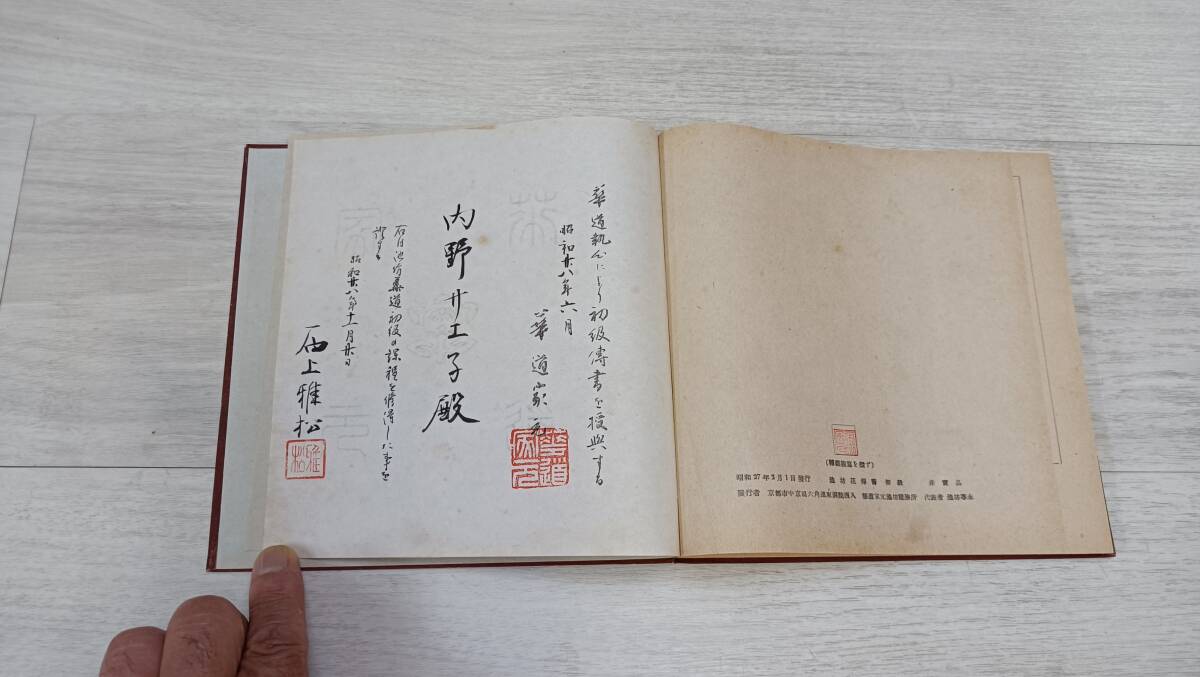 華道執心により初級傳書を授與する
昭和廿八年六月
華道家元
華道家元
内野サエ子殿
右は池坊華道初級の課程を修得した事を
證す
昭和廿八年十一月廿日
石上雅松
雅松
昭和27年3月1日發行 池坊花傳書初級 非賣品
發行者 京都市中京區六角通東洞院西入 華道家元池坊總務所 代表者 池坊專永